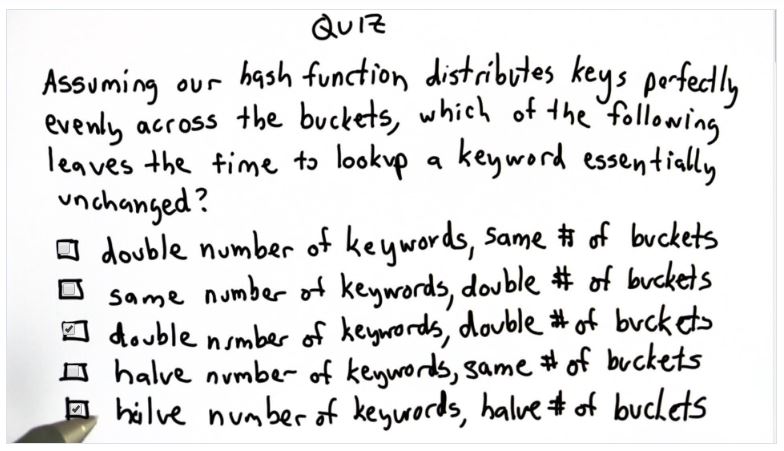 QUIZ
Assuming our hash function distributes keys perfectly
evenly across the buckets, which of the following
leaves the time to lookup a keyword essentially
unchanged?
double number of keywords, same # of buckets
same number of keywords, double # of buckets
double number of keywords, double # of buckets
halve number of keywords, same # of buckets
halve number of keywords, halve # of buckets